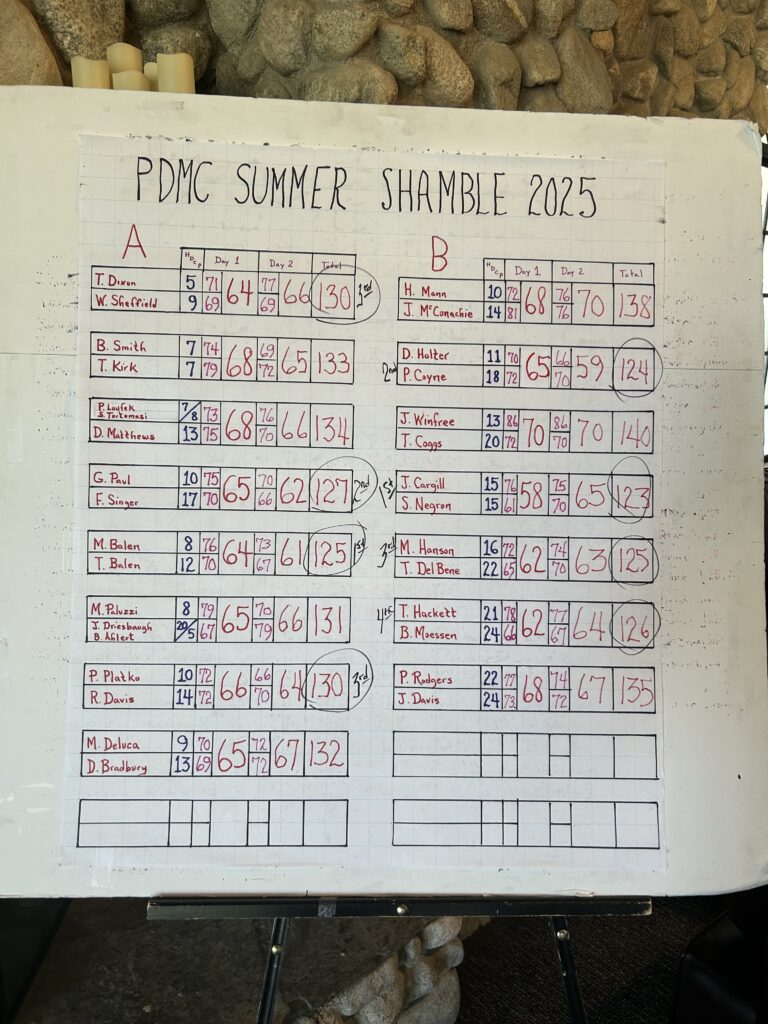 PDMC SUMMER SHAMBLE 2025
A
HDCP Day 1 Day 2 Total
T. Dixon 5 71 64 77 66 130 3rd
W. Sheffield 9 69 69
B. Smith 7 74 68 69 65 133
T. Kirk 7 79 72
P. Loufek 7/8 73 68 76 66 134
D. Matthews 13 75 70
G. Paul 10 75 65 70 62 127 2nd
F. Singer 17 70 66
M. Balen 8 76 64 73 61 125 1st
T. Balen 12 70 67
M. Paluzzi 8 79 65 70 66 131
J. Driesbaugh 20/5 67 79
B. Ahlert
P. Platko 10 72 66 66 64 130 3rd
R. Davis 14 72 70
M. Deluca 9 70 65 72 67 132
D. Bradbury 13 69 72
B
HDCP Day 1 Day 2 Total
H. Mann 10 72 68 76 70 138
J. McConachie 14 81 76
2nd D. Holter 11 70 65 66 59 124
P. Coyne 18 72 70
J. Winfree 13 86 70 86 70 140
T. Coggs 20 72 70
1st J. Cargill 15 76 58 75 65 123
S. Negron 15 61 70
3rd M. Hanson 16 72 62 74 63 125
T. DelBene 22 65 70
4th T. Hackett 21 78 62 77 64 126
B. Moessen 24 66 67
P. Rodgers 22 77 68 74 67 135
J. Davis 24 73 72